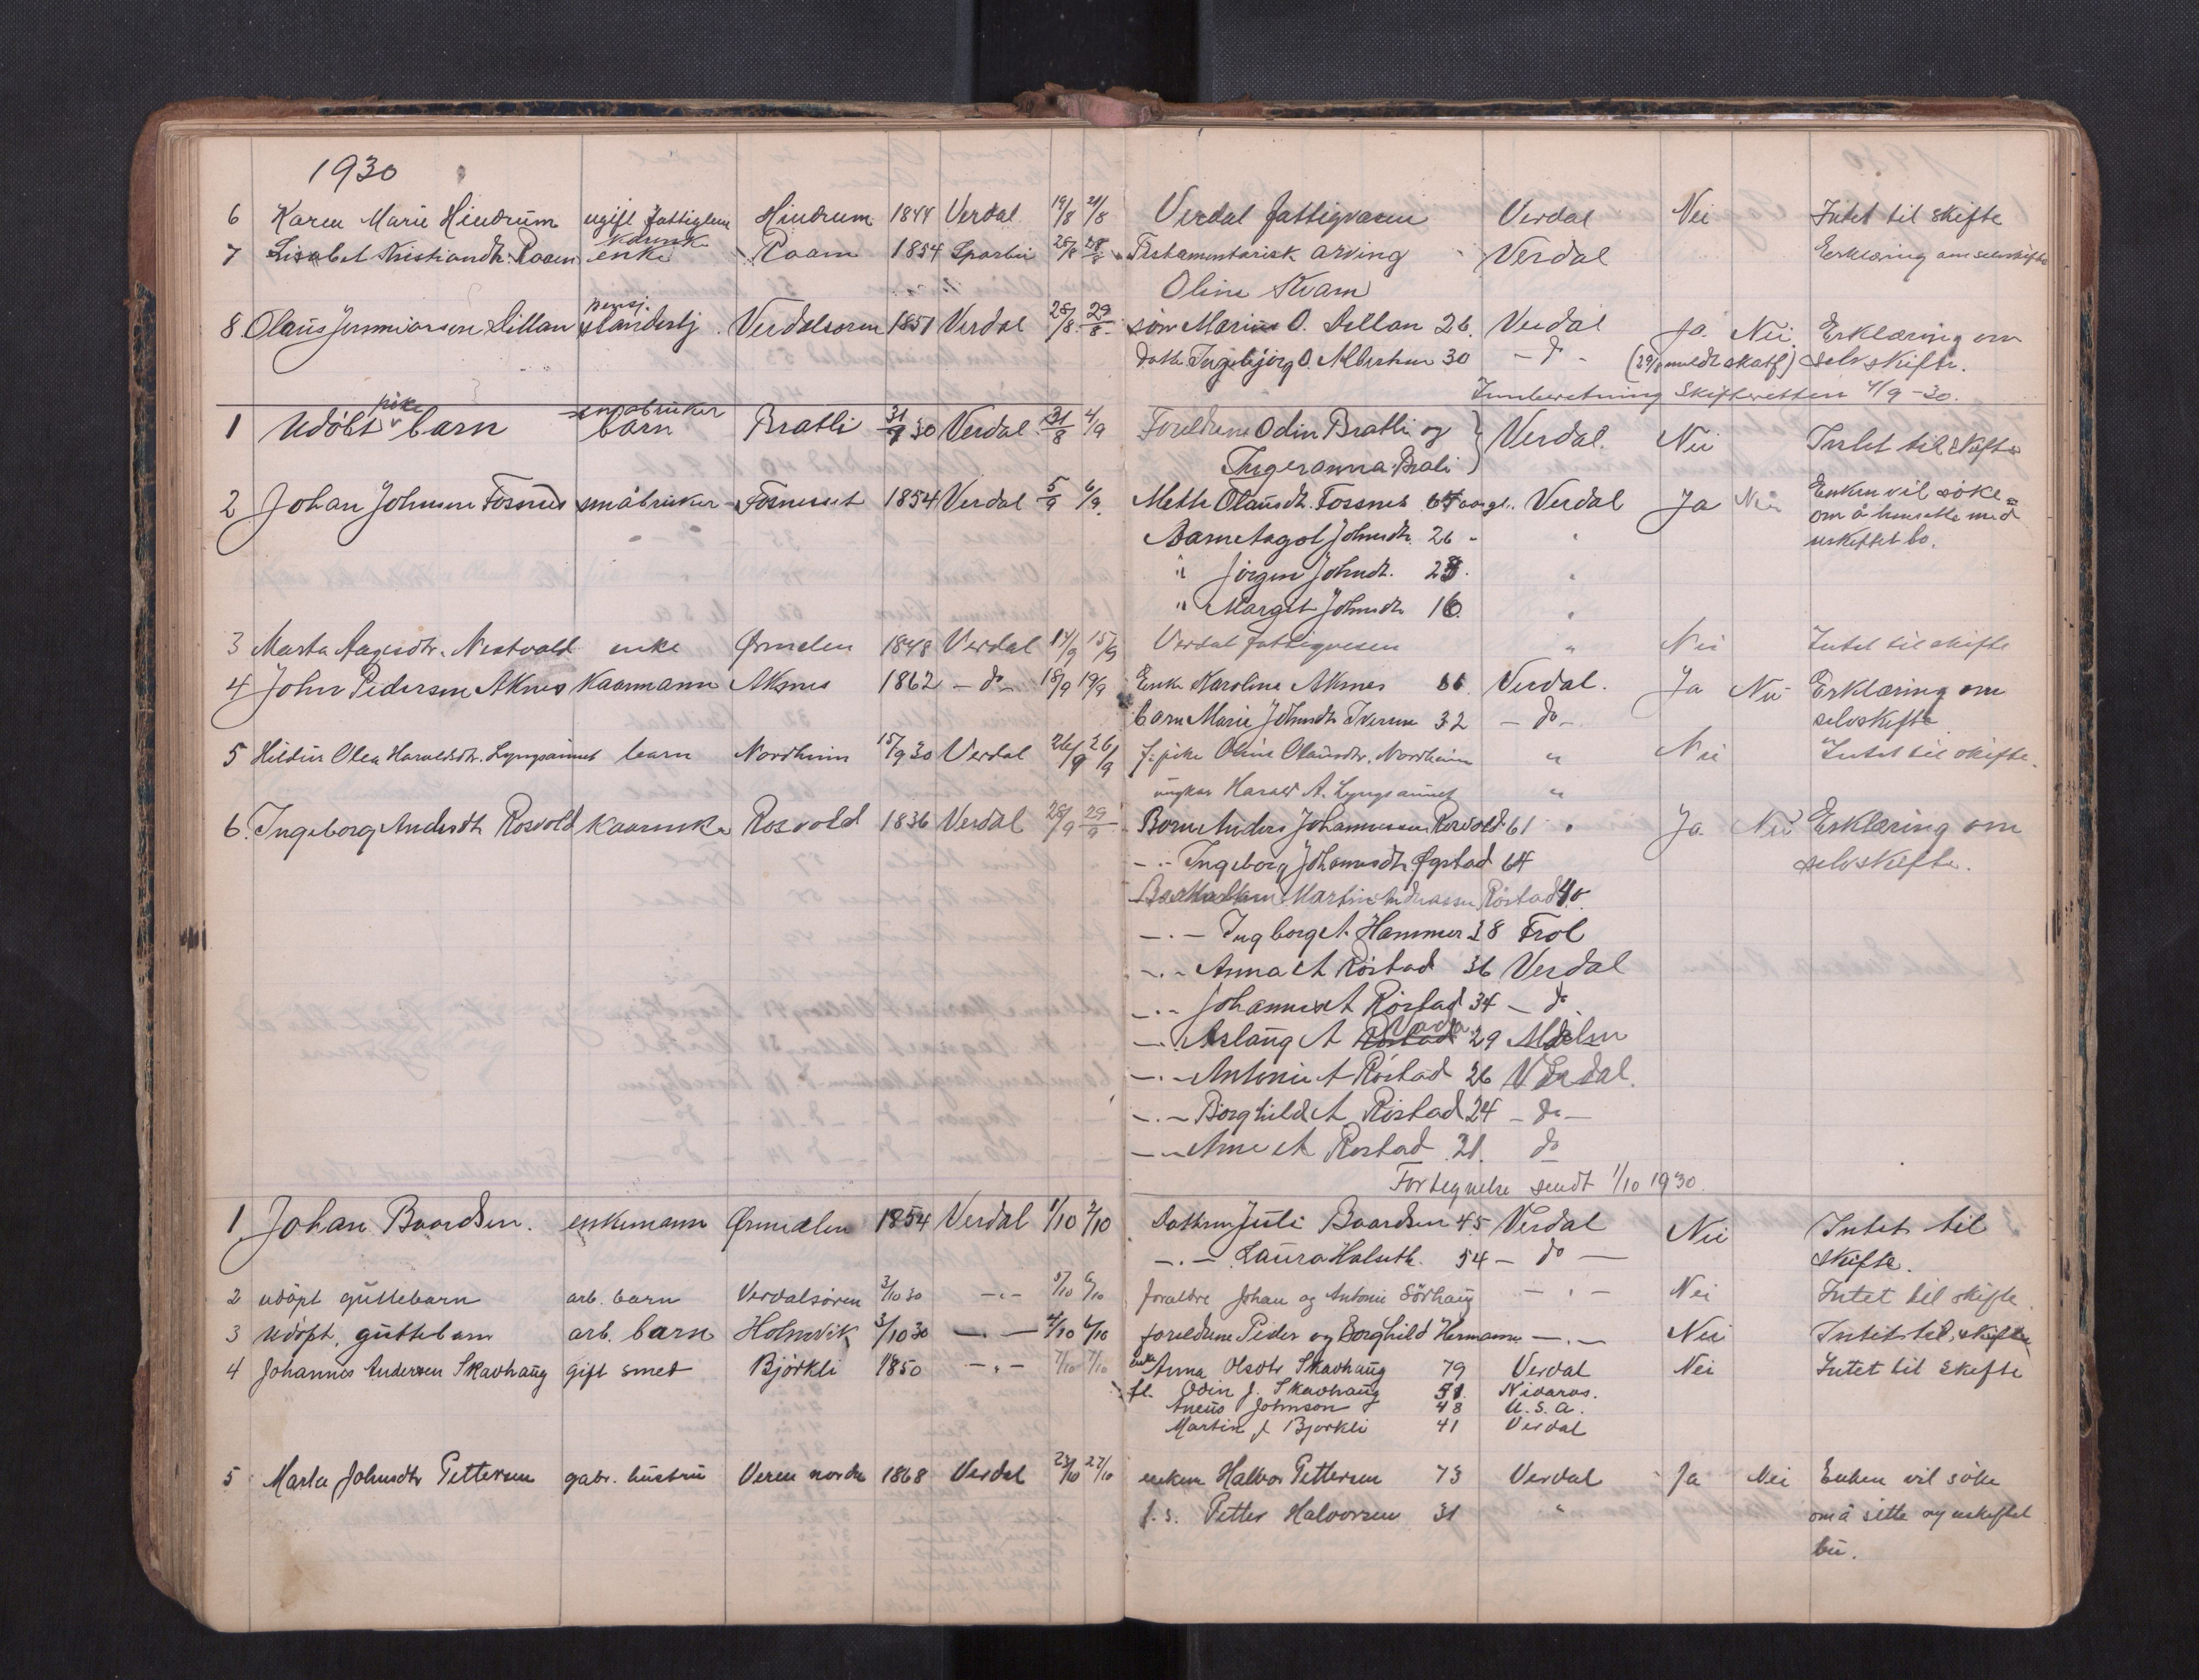 1930
6 Karen Marie Hindrum ugift fattiglem Hindrum 1844 Verdal 19/8 21/8 Verdal fattigvæsen Verdal Nei Intet til skifte
kårenke
7 Lisabet Kristiandtr. Raaen enke Raaen 1854 Sparbu 25/8 28/8 Testamentarisk arving Verdal Erklæring om selvskifte
Oline Kvam
pensj.
8 Olaus Jenniarsen Dillan standerbj Verdalsøren 1851 Verdal 28/8 29/8 søn Marius O. Dillan 26 Verdal Ja Nei Erklæring om
datter Ingebjørg O. Albertsen 30 - do - (29/8 meldt skatf) selvskifte.
Innberetning Skifteretten 4/9-30.
pike småbruker
1 Udøbt v barn barn Bratli 31/8 30 Verdal 31/8 4/9 Foreldrene Odin Bratli og Verdal. Nei Intet til skifte
Ingeranna Brali
2 Johan Johnsen Fosnes småbruker Fosnesset 1854 Verdal 5/9 6/9 Mette Olausdt. Fossnes 64 aar gl. Verdal Ja Nei Enken vil søke
om å hensette med
Barne Aagot Johnsdtr. 26 - "
uskiftet bo.
" Jörgen Johndt. 28. "
" Margit Johnsdtr 16. "
3 Marta Aagesdtr. Nestvold enke Ørmelen 1848 Verdal 14/9 15/9 Verdal fattigvesen " Nei Intet til skifte
4 John Pedersen Aknes Kaarmann Aknes 1862 - do - 18/9 19/9 Enke Karoline Aknes 66 Verdal. Ja Nei Erklæring om
barn Marie Johnsdtr Iversen 32 - do - selvskifte
5 Hildur Olea Haraldsdtr. Lyngsaunet barn Nordheim 15/9 30 Verdal 26/9 26/9 f. pike Oline Olausdtr. Nordheim " Nei Intet til skifte.
ungkar Harald A. Lyngsaunet "
6. Ingeborg Andersdtr Rosvold Kaarenke Rosvold 1836 Verdal 28/9 29/9 Born Anders Johannessen Rosvold 61 " Ja Nei Erklæring om
- " - Ingeborg Johannesdtr. Øgstad 64 selvskifte.
Barnebarn Martin Andreassen Röstad 40.
- . - Ingborg A. Hammer 38 Frol
- . - Anna A Röstad 36 Verdal
- . - Johannes A Röstad 34 - do
Vada
- . - Aslaug A Röstad 29 Malm
- . - Antonie A Röstad 26 Verdal.
- . - Borghild A Röstad 24 - do -
- . - Arne A Rostad 21. do
Fortegnelse sendt 1/10 1930.
1 Johan Baardsen. enkemann Ørmelen 1854 Verdal 1/10 2/10 Dattren Juli Baardsen 45 Verdal Nei Intet til
- . - Laura Halseth. 54 - do - skifte.
2 udöpt guttebarn arb. barn Verdalsøren 3/10 30 - . - 5/10 6/10 foreldre Johan og Antonie Sörhaug - . - Nei Intet til skifte.
3 Udöpt, guttebarn arb. barn Holmvik 3/10 30 - . - 4/10 6/10 foreldrene Peder og Borghild Hermann - . - Nei Intet til skifte
4 Johannes Andersen Skavhaug gift smed Björkli 1850 - " - 7/10 7/10 Enke Anna Olsdtr Skavhaug 79 Verdal Nei Intet til skifte
fl. Odin J. Skavhaug 51. Nidaros.
Aneus Johnson 48 U.S.A.
Martin J. Bjorkli 41 Verdal
5 Marta Johnsdtr Pettersen gabr. hustru Veren nordre 1868 Verdal 25/10 27/10 enkem Halvor Pettersen 73 Verdal Ja Nei Enken vil söke
f. s. Petter Halvorsen 31 " om å sitte og uskiftet
bu.